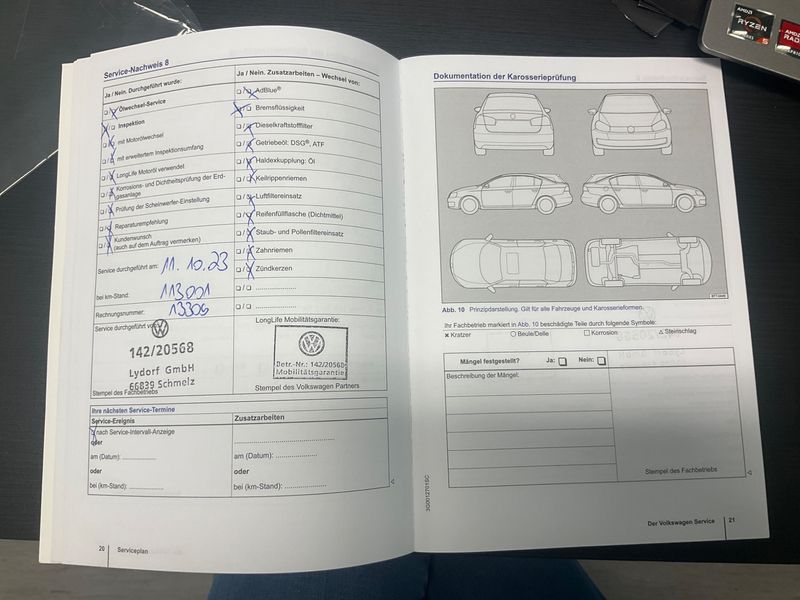 Service-Nachweis 8
Ja / Nein. Durchgeführt wurde:
Ölwechsel-Service
Inspektion
mit Motorölwechsel
mit erweitertem Inspektionsumfang
LongLife Motoröl verwendet
Korrosions- und Dichtheitsprüfung der Erd-
gasanlage
Prüfung der Scheinwerfer-Einstellung
Reparaturempfehlung
Kundenwunsch
(auch auf dem Auftrag vermerken)
Service durchgeführt am: 11.10.23
bei km-Stand: 113001
Rechnungsnummer: 13306
Service durchgeführt von:
142/20568
Lydorf GmbH
66839 Schmelz
Stempel des Fachbetriebs
Ja / Nein. Zusatzarbeiten – Wechsel von:
AdBlue®
Bremsflüssigkeit
Dieselkraftstofffilter
Getriebeöl: DSG®, ATF
Haldexkupplung: Öl
Keilrippenriemen
Luftfiltereinsatz
Reifenfüllflasche (Dichtmittel)
Staub- und Pollenfiltereinsatz
Zahnriemen
Zündkerzen
LongLife Mobilitätsgarantie:
Betr.-Nr.: 142/20568
Mobilitätsgarantie
Stempel des Volkswagen Partners
Ihre nächsten Service-Termine
Service-Ereignis
nach Service-Intervall-Anzeige
oder
am (Datum): ............
oder
bei (km-Stand): ............
Zusatzarbeiten
am (Datum): ...............
oder
bei (km-Stand): ...............
20 Serviceplan
Dokumentation der Karosserieprüfung
Abb. 10 Prinzipdarstellung. Gilt für alle Fahrzeuge und Karosserieformen.
Ihr Fachbetrieb markiert in Abb. 10 beschädigte Teile durch folgende Symbole:
× Kratzer ○ Beule/Delle □ Korrosion △ Steinschlag
Mängel festgestellt? Ja: Nein:
Beschreibung der Mängel:
Stempel des Fachbetriebs
3G0012701SC
Der Volkswagen Service 21
AMD
RYZEN
5
AMD